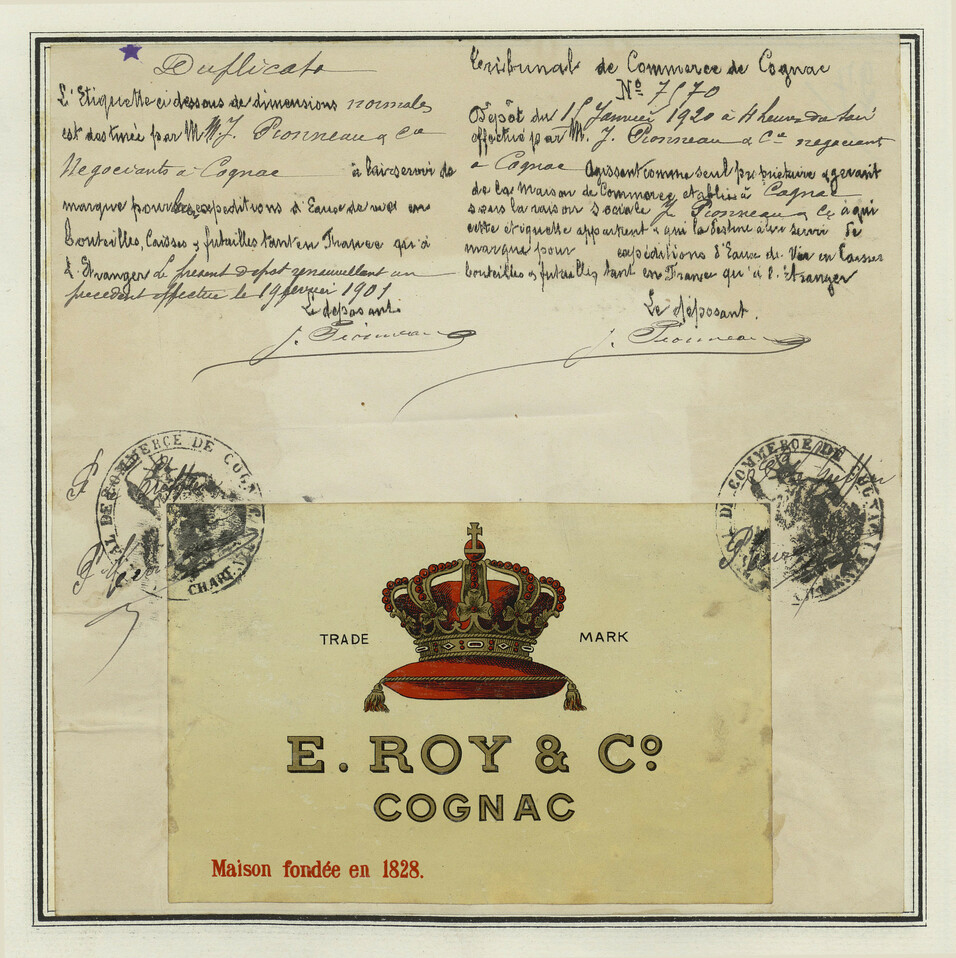 Duplicata
L'Etiquette ci dessous de dimensions normales
est destinée par MM J. Pionneau & Cie
Negociants à Cognac à lui servir de
marque pour les expeditions d'Eaux de vie en
bouteilles, Caisses & futailles tant en France qu'à
l'Etranger Le présent dépot renouvellant un
precedent effectué le 19 février 1901
Le déposant.
J. Pionneau
Tribunal de Commerce de Cognac
No 7570
Dépôt du 15 Janvier 1920 à 4 heures du soir
effectué par M. J. Pionneau & Cie negociant
à Cognac Agissant comme seul propriétaire & gerant
de la Maison de Commerce, etablie à Cognac
sous la raison sociale J. Pionneau & Cie à qui
cette étiquette appartient & qui la destine à lui servir de
marque pour expéditions d'Eaux de Vie en Caisses
bouteilles & futailles, tant en France qu'à l'étranger
Le déposant.
J. Pionneau
AL DE COMMERCE DE COGNAC
CHAR
DE COMMERCE DE COGNAC
TRADE MARK
E. ROY & Co
COGNAC
Maison fondée en 1828.